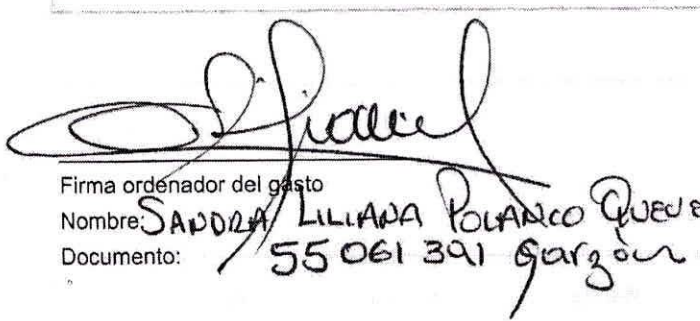 Firma ordenador del gasto
Nombre: SANDRA LILIANA POLANCO QUEVE
Documento: 55 061 391 Garzòn